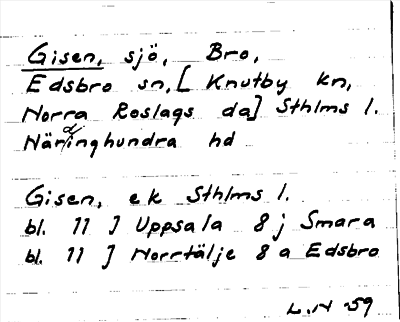 Gisen, sjö, Bro,
Edsbro sn, [ Knutby kn,
Norra Roslags da] Sthlms l.
Närdinghundra hd
Gisen, ek Sthlms l.
bl. 11 J Uppsala 8 j Smara
bl. 11 J Norrtälje 8 a Edsbro
L.H -59